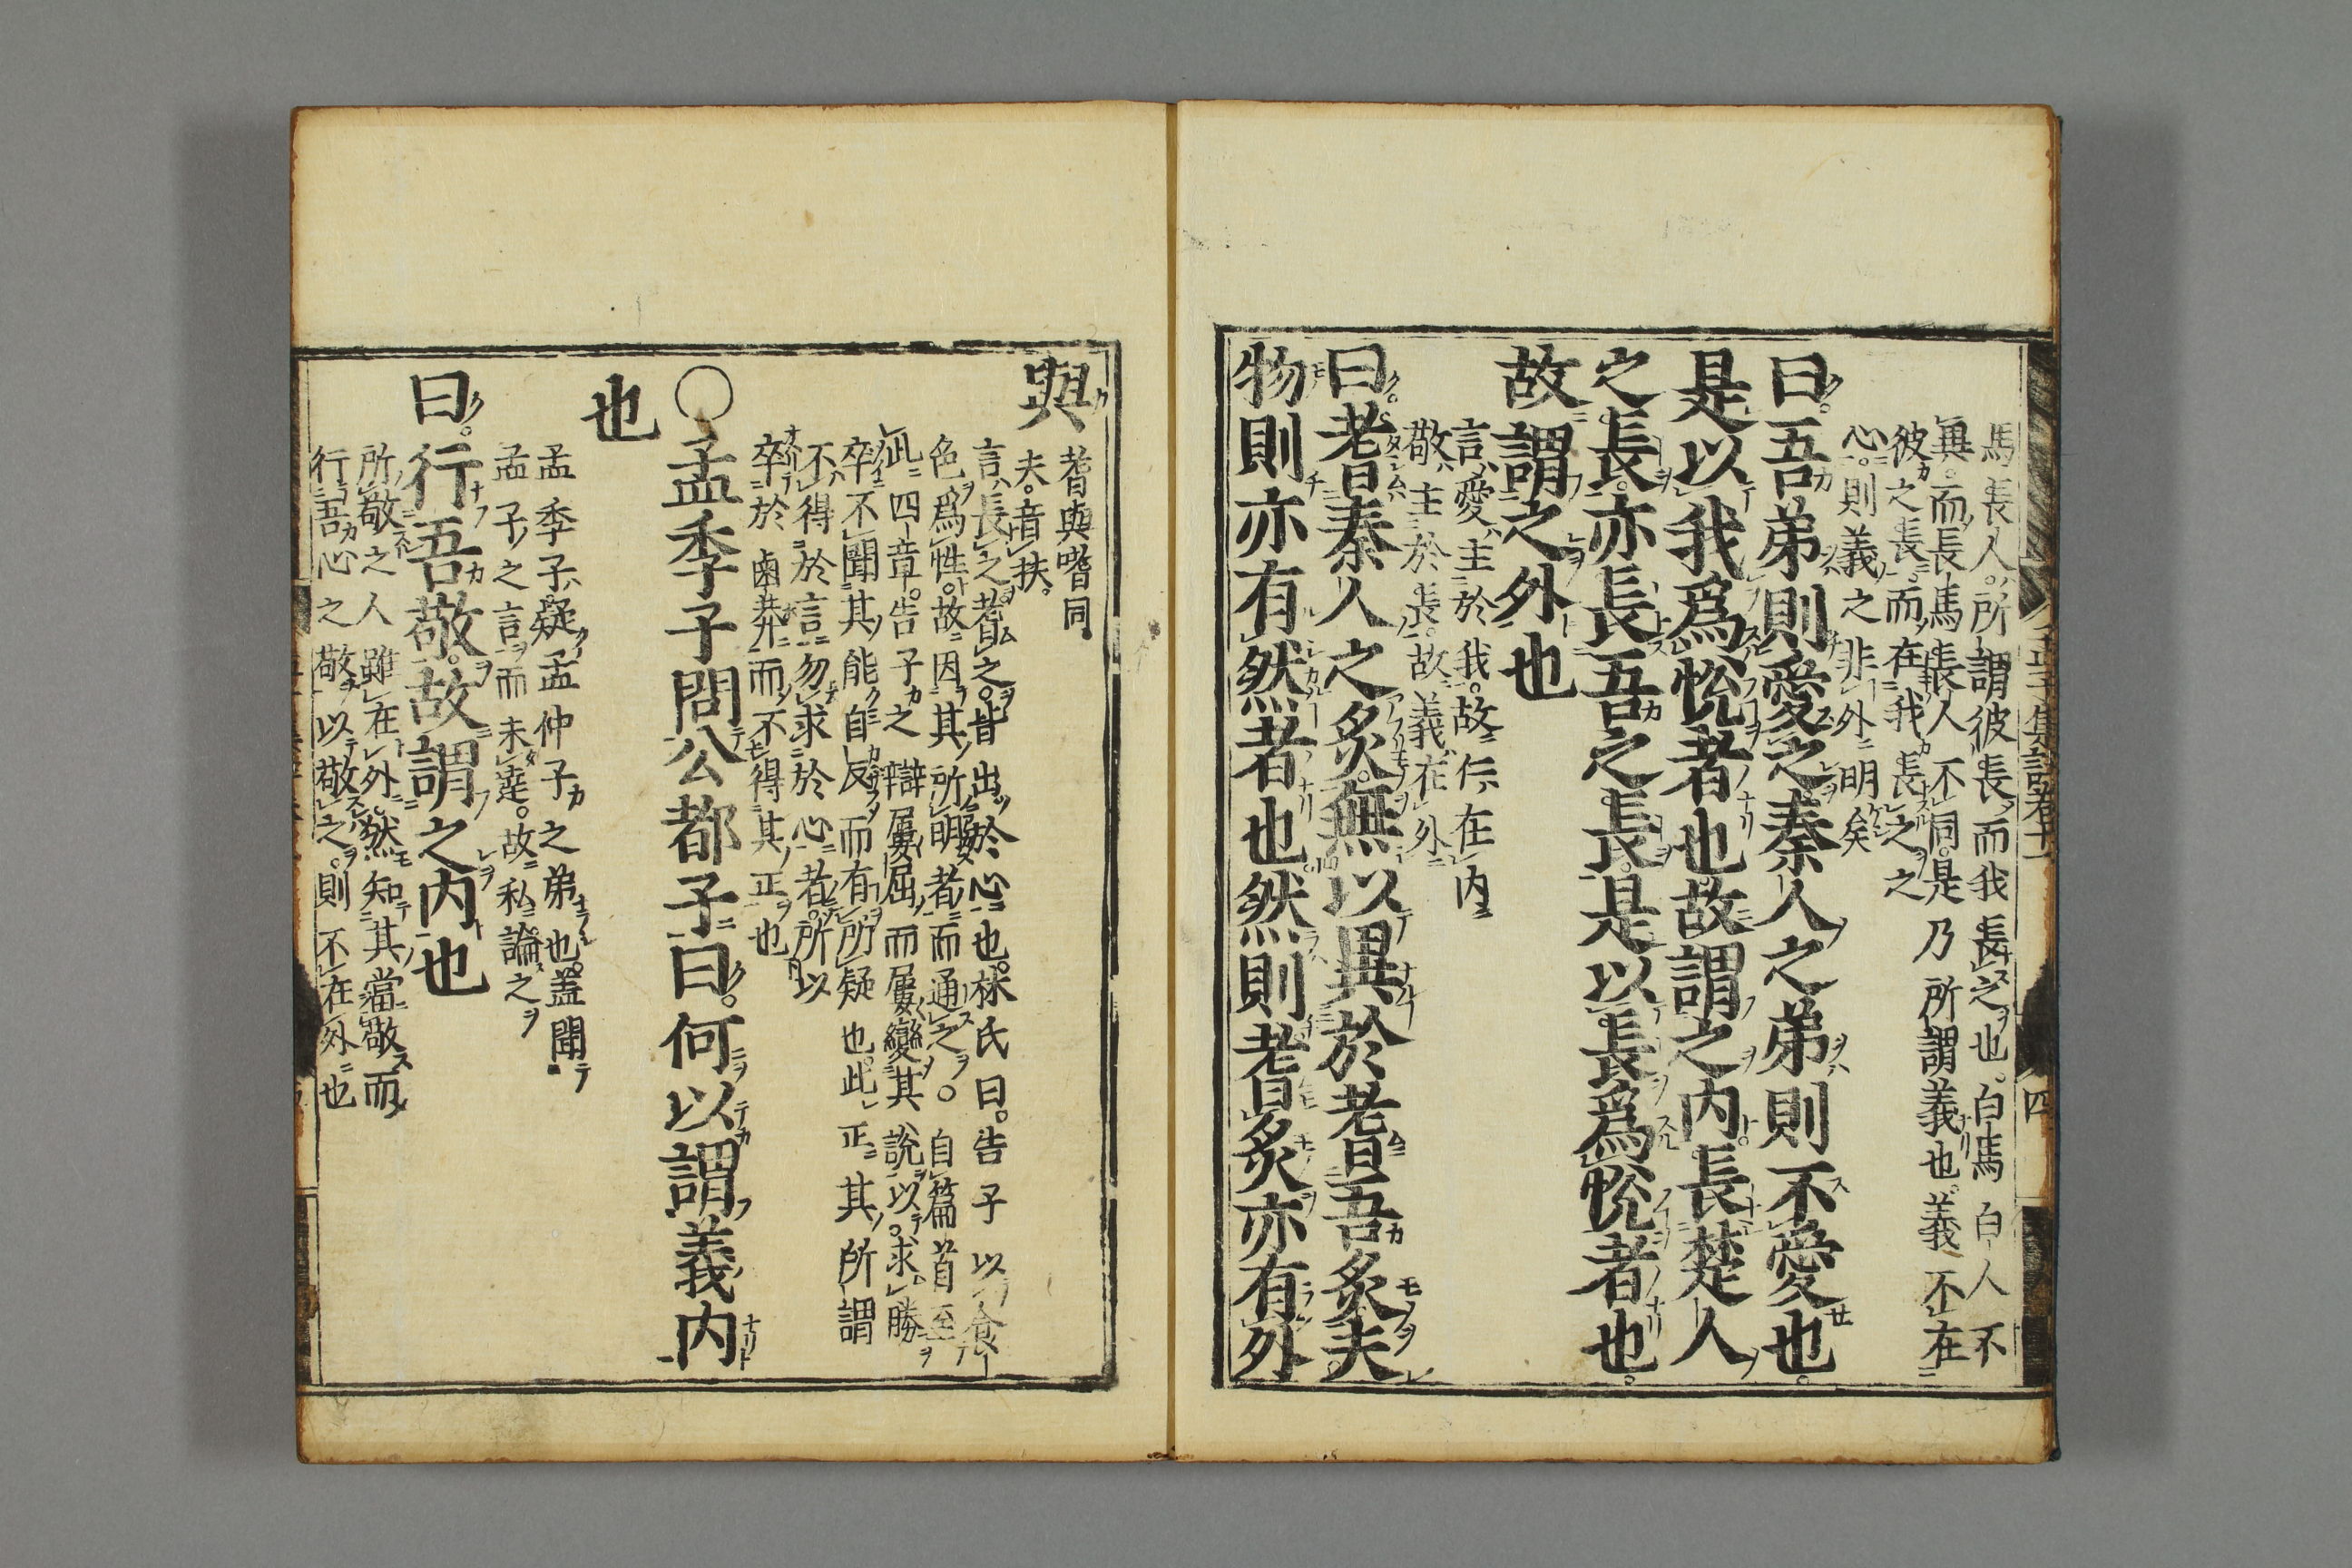 馬長人。所謂彼長、而我長之也。白馬白人不
異。而長馬長人不同。是乃所謂義也。義不在
彼之長。而在我長之之
心。則義之非外明矣
曰。吾弟則愛之。秦人之弟則不愛也。
是以我爲悅者也。故謂之內。長楚人
之長。亦長吾之長。是以長爲悅者也。
故謂之外也
言愛主於我。故仁在內
敬主於長。故義在外
曰。耆秦人之炙。無以異於耆吾炙。夫
物則亦有然者也。然則耆炙亦有外
與
耆與嗜同
夫。音扶。
言長之耆之。皆出於心也。林氏曰。告子以食
色爲性。故因其所明者而通之。○自篇首至
此四章。告子之辯屢屈。而屢變其說。以求勝
卒不聞其能自反而有所疑也。此正其所謂
不得於言。勿求於心者。所以
卒於鹵莽而不得其正也
○孟季子問公都子曰。何以謂義內
也
孟季子疑孟仲子之弟也。蓋聞
孟子之言而未達。故私論之
曰。行吾敬。故謂之內也
所敬之人雖在外。然知其當敬而
行吾心之敬以敬之。則不在外也
孟子集註卷十一
四